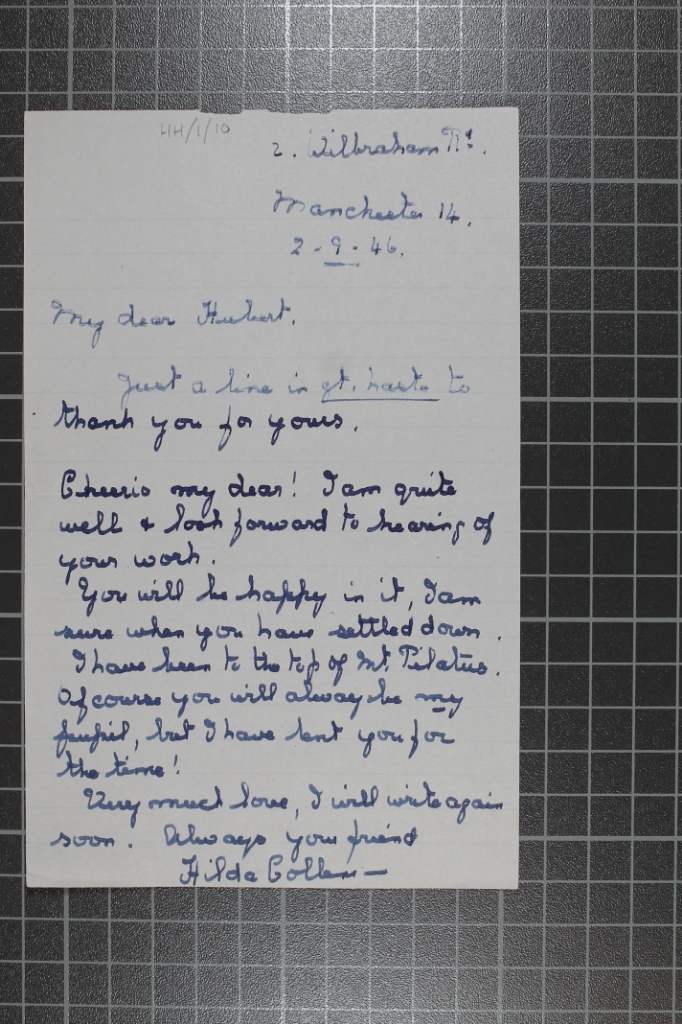 HH/1/10
2. Wilbraham Rd.
Manchester 14.
2-9-46.
My dear Hubert.
Just a line in gt. haste to
thank you for yours.
Cheerio my dear! I am quite
well & look forward to hearing of
your work.
You will be happy in it, I am
sure when you have settled down.
I have been to the top of Mt. Pilatus.
Of course you will always be my
pupil, but I have lent you for
the time!
Very much love, I will write again
soon. Always your friend
Hilda Collens